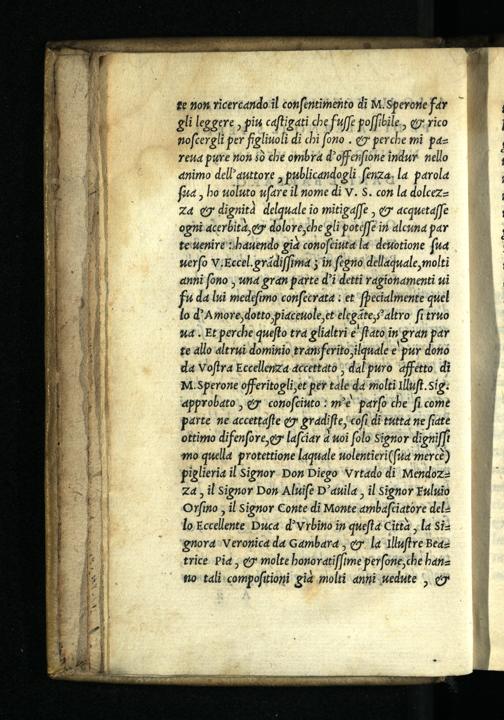 te non ricercando il conſentimento di M. Sperone far
gli leggere, piu caſtigati che fuſſe poſſibile, & rico
noſcergli per figliuoli di chi ſono. & perche mi pa=
reua pure non sò che ombra d'offenſione indur nello
animo dell'auttore, publicandogli ſenza la parola
ſua, ho uoluto uſare il nome di V. S. con la dolcez=
za & dignità delquale io mitigaſſe, & acquetaſſe
ogni acerbità, & dolore, che gli poteſſe in alcuna par
te uenire: hauendo già conoſciuta la deuotione ſua
uerſo V. Eccel. grādiſſima; in ſegno dellaquale, molti
anni ſono, una gran parte d'i detti ragionamenti ui
fu da lui medeſimo conſecrata: et ſpecialmente quel
lo d'Amore, dotto, piaceuole, et elegāte, s'altro ſi truo
ua. Et perche queſto tra glialtri è ſtato in gran par
te allo altrui dominio transferito, ilquale è pur dono
da Voſtra Eccellenza accettato, dal puro affetto di
M. Sperone offeritogli, et per tale da molti Illuſt. Sig.
approbato, & conoſciuto: m'è parſo che ſi come
parte ne accettaſte & gradiſte, coſi di tutta ne ſiate
ottimo difenſore, & laſciar à uoi ſolo Signor digniſſi
mo quella protettione laquale uolentieri (ſua mercè)
piglieria il Signor Don Diego Vrtado di Mendoz=
za, il Signor Don Aluiſe D'auila, il Signor Fuluio
Orſino, il Signor Conte di Monte ambaſciatore del=
lo Eccellente Duca d'Vrbino in queſta Città, la Si=
gnora Veronica da Gambara, & la Illuſtre Bea=
trice Pia, & molte honoratiſſime perſone, che han=
no tali compoſitioni già molti anni uedute, &